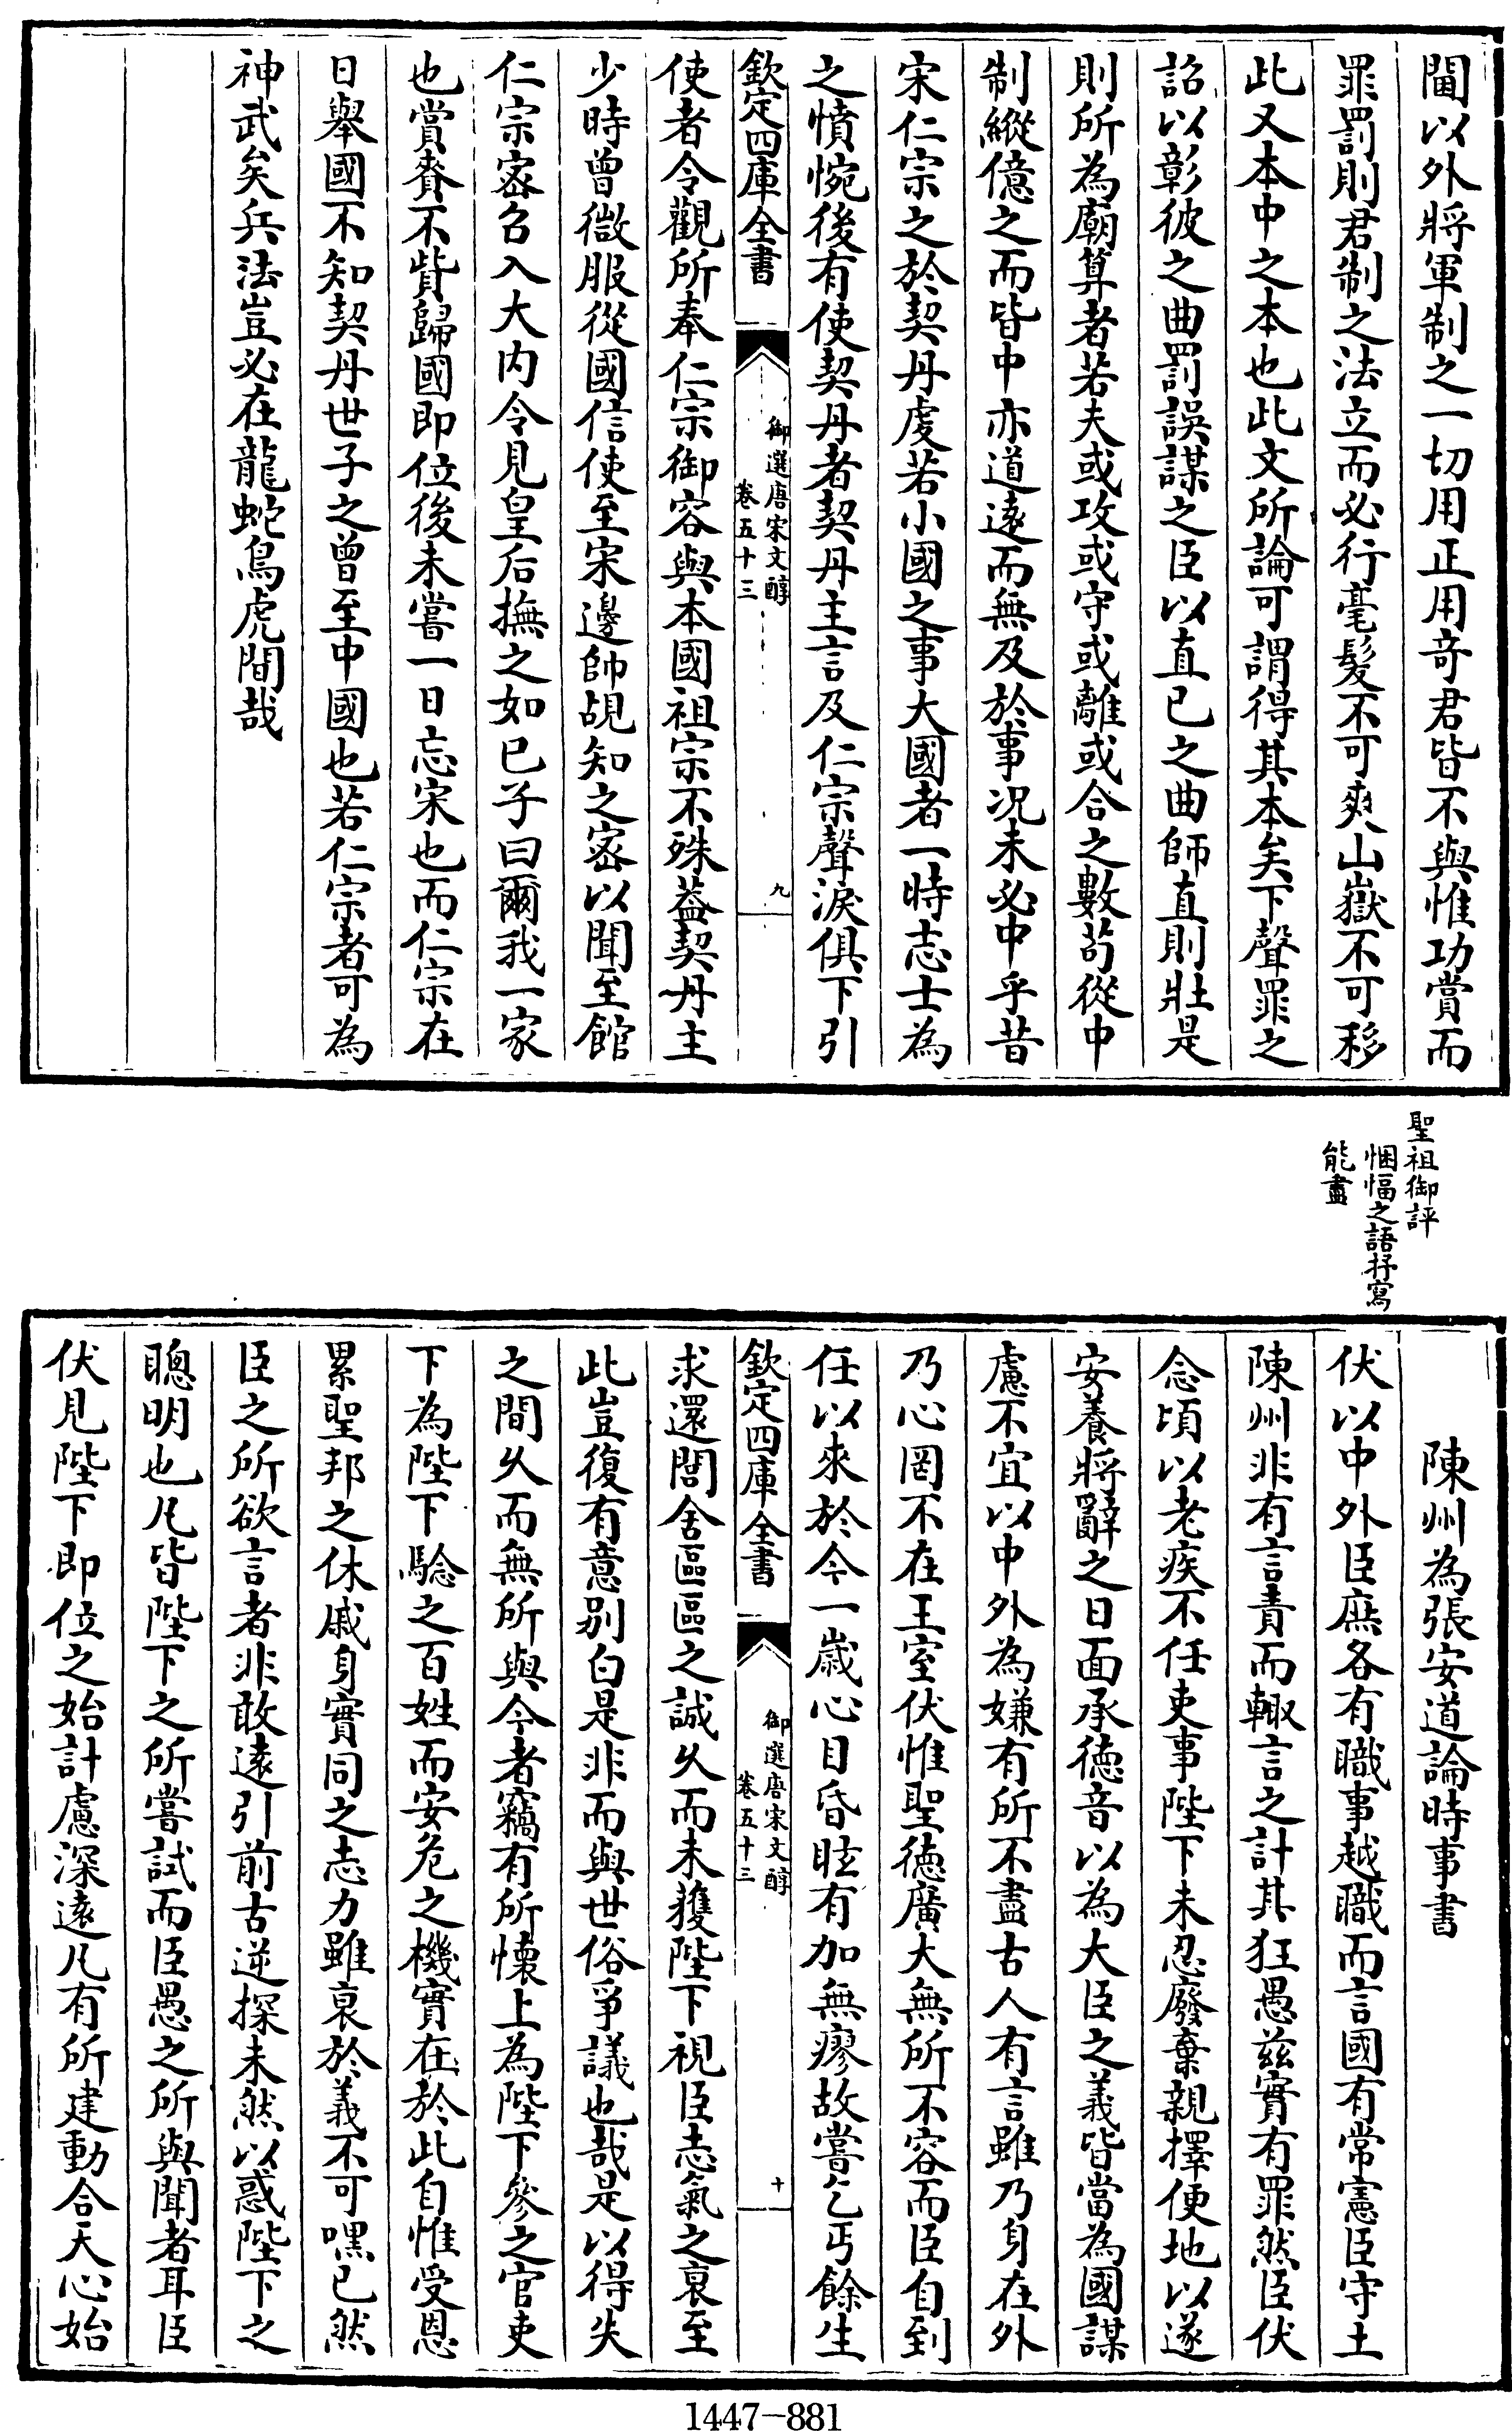 閫以外將軍制之一切用正用奇君皆不與惟功賞而
罪罰則君制之法立而必行毫髮不可爽山嶽不可移
此又本中之本也此文所論可謂得其本矣下聲罪之
詔以彰彼之曲罰誤謀之臣以直已之曲師直則壯是
則所為廟算者若夫或攻或守或離或合之數茍從中
制縱億之而皆中亦道遠而無及於事况未必中乎昔
宋仁宗之於契丹虔若小國之事大國者一時志士為
之憤惋後有使契丹者契丹主言及仁宗聲淚俱下引
欽定四庫全書
御選唐宋文醇
卷五十三
九
使者令觀所奉仁宗御容與本國祖宗不殊葢契丹主
少時曾微服從國信使至宋邊帥覘知之密以聞至館
仁宗密召入大内令見皇后撫之如已子曰爾我一家
也賞賚不貲歸國即位後未嘗一日忘宋也而仁宗在
日舉國不知契丹世子之曾至中國也若仁宗者可為
神武矣兵法豈必在龍蛇鳥虎間哉
聖祖御評
悃愊之語抒寫
能盡
陳州為張安道論時事書
伏以中外臣庶各有職事越職而言國有常憲臣守土
陳州非有言責而輙言之計其狂愚兹實有罪然臣伏
念頃以老疾不任吏事陛下未忍廢棄親擇便地以遂
安養將辭之日面承徳音以為大臣之義皆當為國謀
慮不宜以中外為嫌有所不盡古人有言雖乃身在外
乃心罔不在王室伏惟聖徳廣大無所不容而臣自到
任以來於今一歲心目昏眩有加無瘳故嘗乞丐餘生
欽定四庫全書
御選唐宋文醇
卷五十三
十
求還閭舍區區之誠久而未獲陛下視臣志氣之衰至
此豈復有意别白是非而與世俗爭議也哉是以得失
之間久而無所與今者竊有所懐上為陛下參之官吏
下為陛下騐之百姓而安危之機實在於此自惟受恩
累聖邦之休戚身實同之志力雖衰於義不可嘿已然
臣之所欲言者非敢遠引前古逆探未然以惑陛下之
聰明也凡皆陛下之所嘗試而臣愚之所與聞者耳臣
伏見陛下即位之始計慮深遠凡有所建動合天心始
1447-881